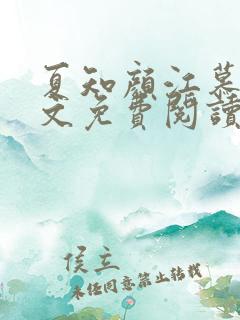 夏知顏江慕
文免費閱讀
侯立
未經同意禁止轉載